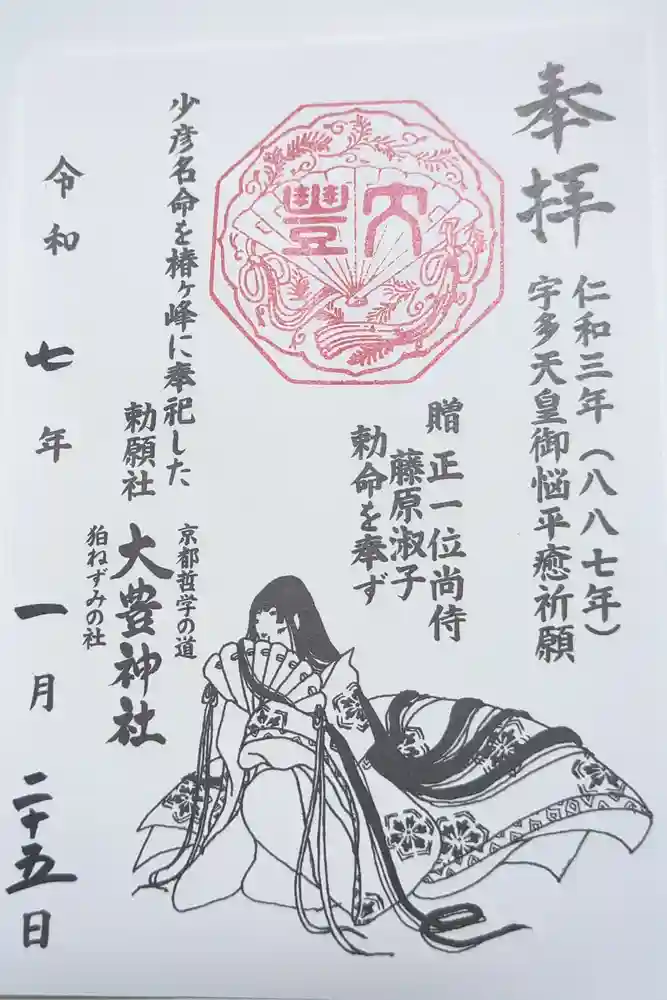 奉拝
仁和三年(八八七年)
宇多天皇御悩平癒祈願
贈 正一位尚侍
藤原淑子
勅命を奉ず
大豊
少彦名命を椿ヶ峰に奉祀した
勅願社
京都哲学の道
大豊神社
狛ねずみの社
令和七年一月二十五日